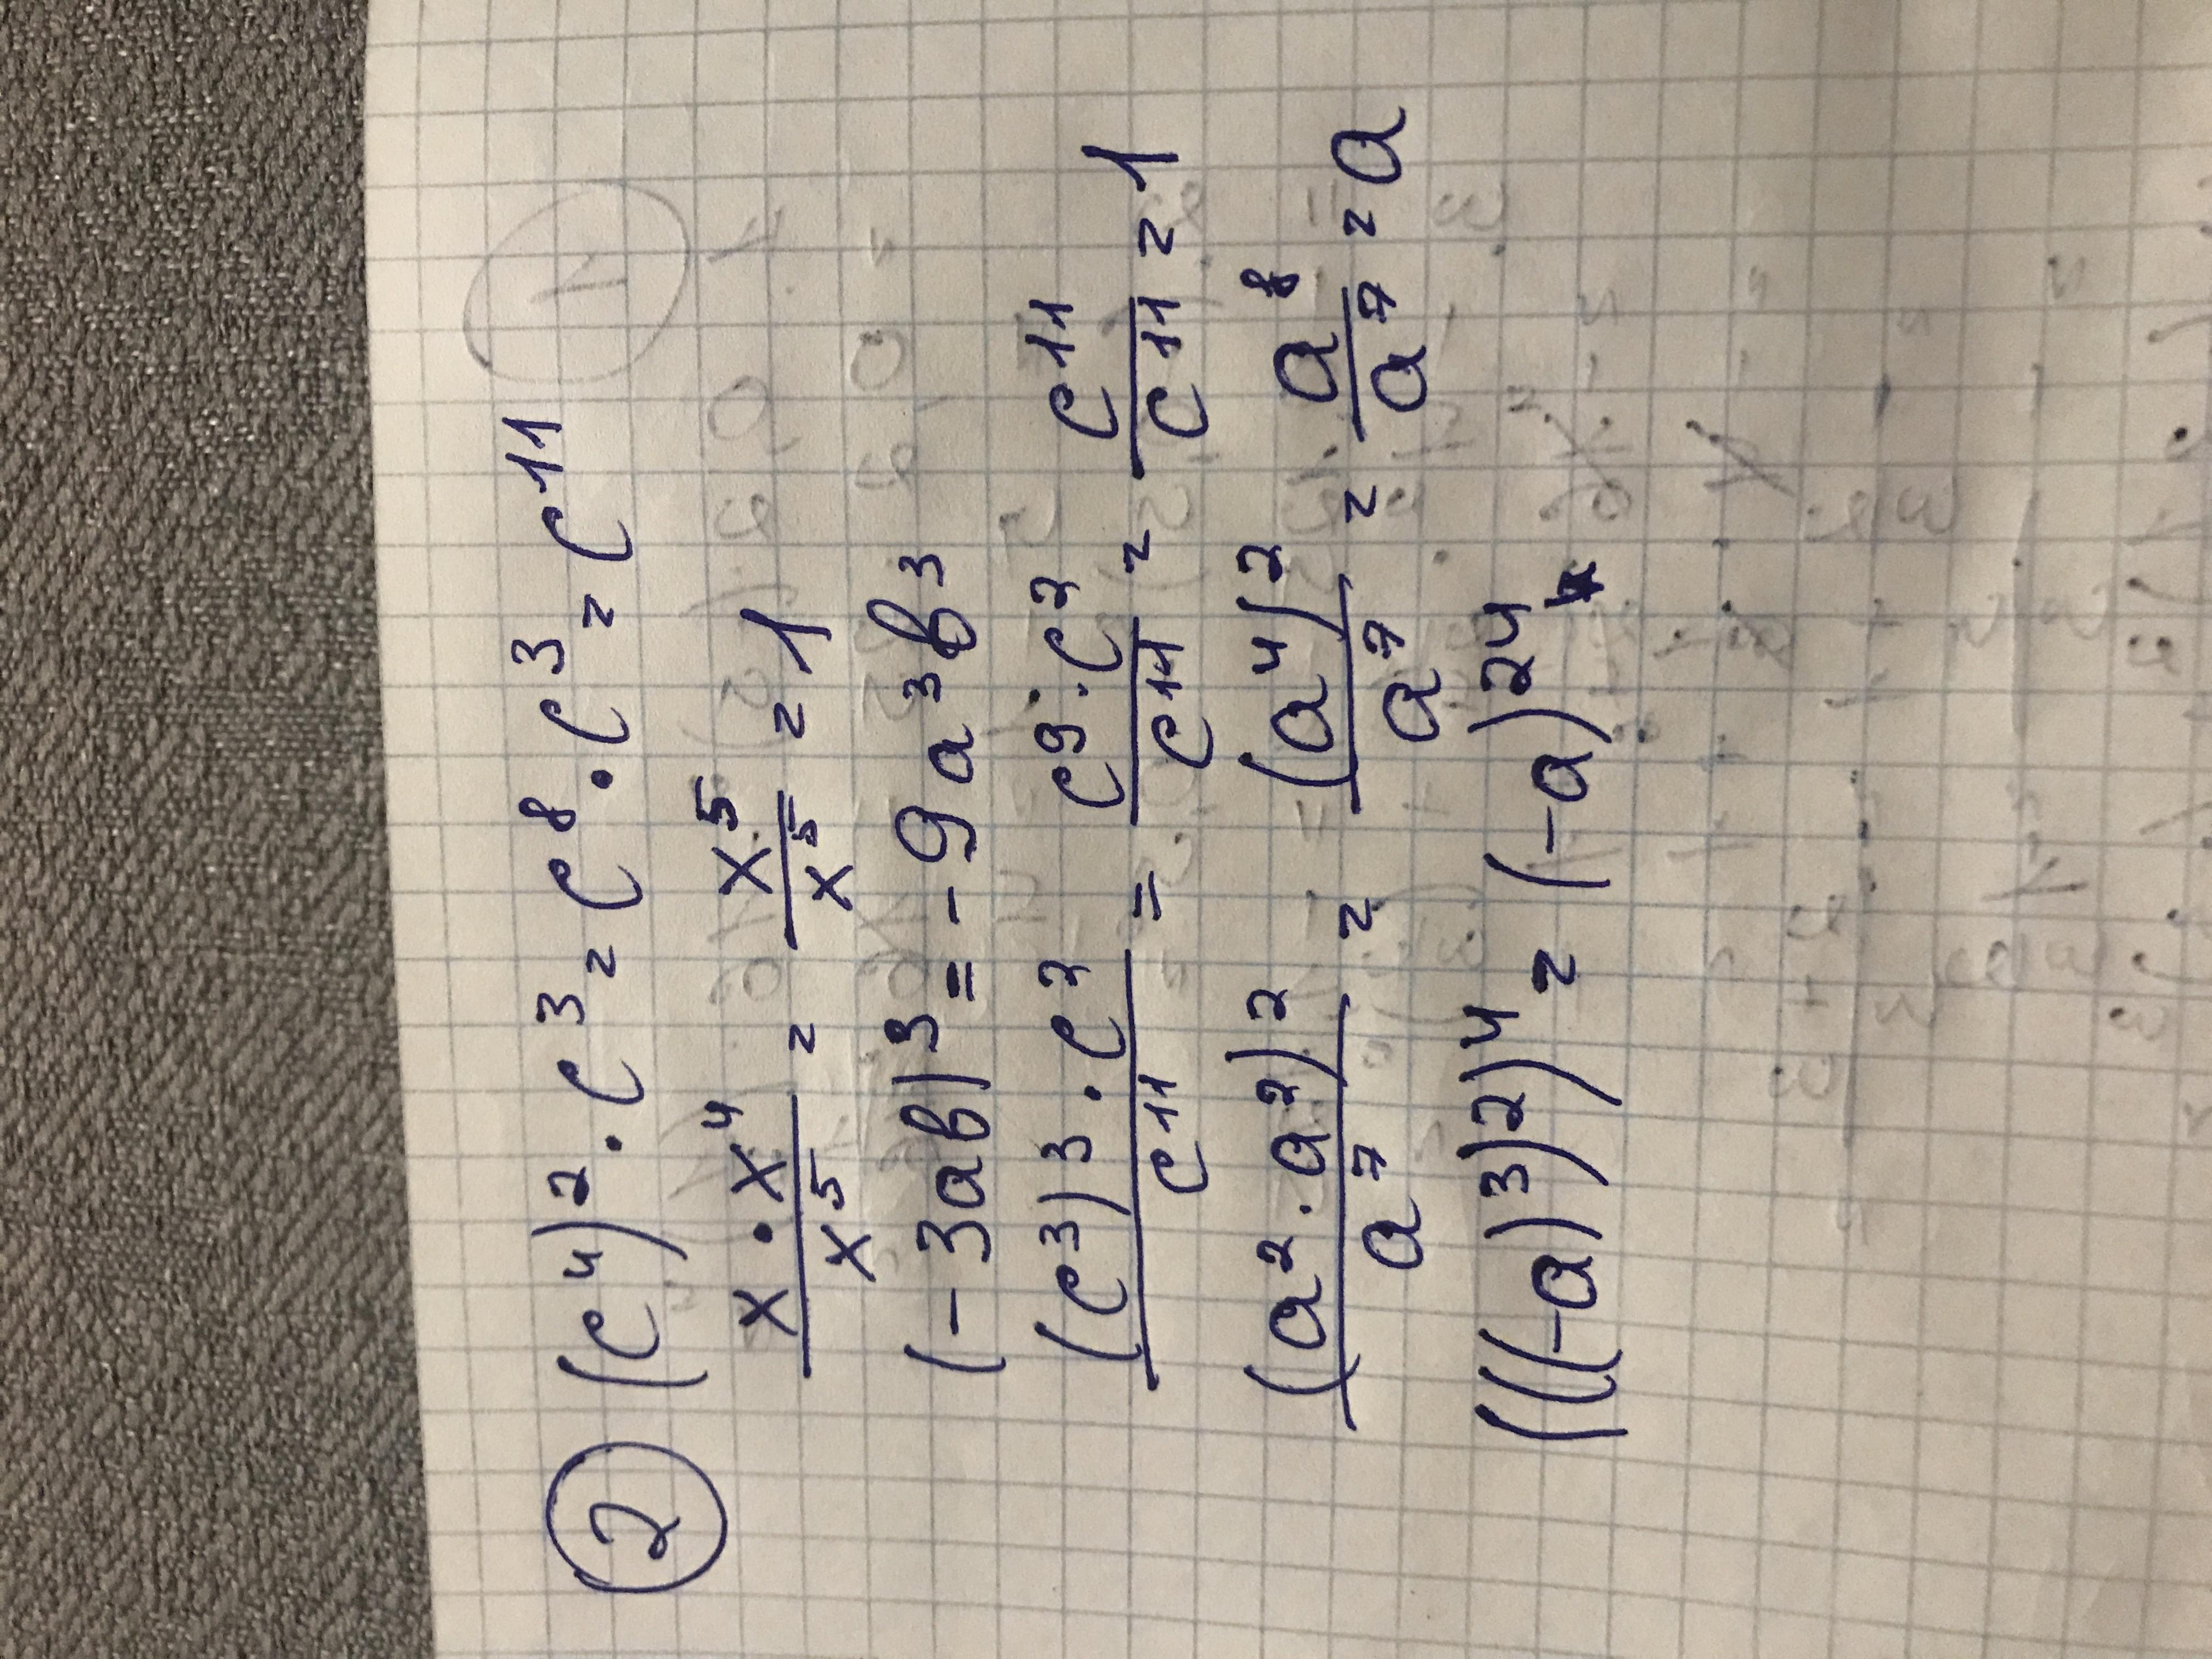 ② (c⁴)² · c³ = c⁸ · c³ = c¹¹
(x · x⁴)/x⁵ = x⁵/x⁵ = 1
(-3ab)³ = -9a³b³
((c³)³ · c²)/c¹¹ = (c⁹ · c²)/c¹¹ = c¹¹/c¹¹ = 1
(a² · a²)²/a⁷ = (a⁴)²/a⁷ = a⁸/a⁷ = a
(((-a)³)²)⁴ = (-a)²⁴